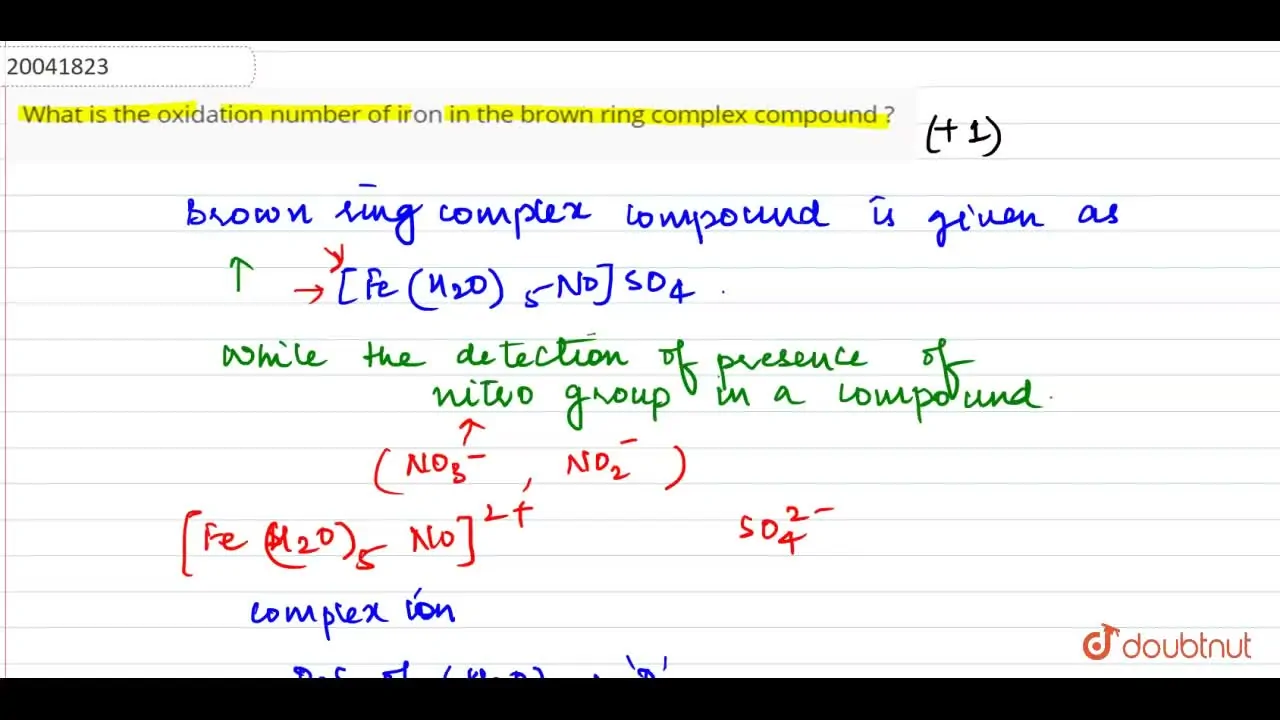 20041823
What is the oxidation number of iron in the brown ring complex compound ?
(+1)
Brown ring complex compound is given as
[Fe(H2O)5NO]SO4.
while the detection of presence of
nitro group in a compound.
(NO3-, NO2-)
[Fe(H2O)5 NO]2+ SO4 2-
complex ion
of (H2O)
doubtnut